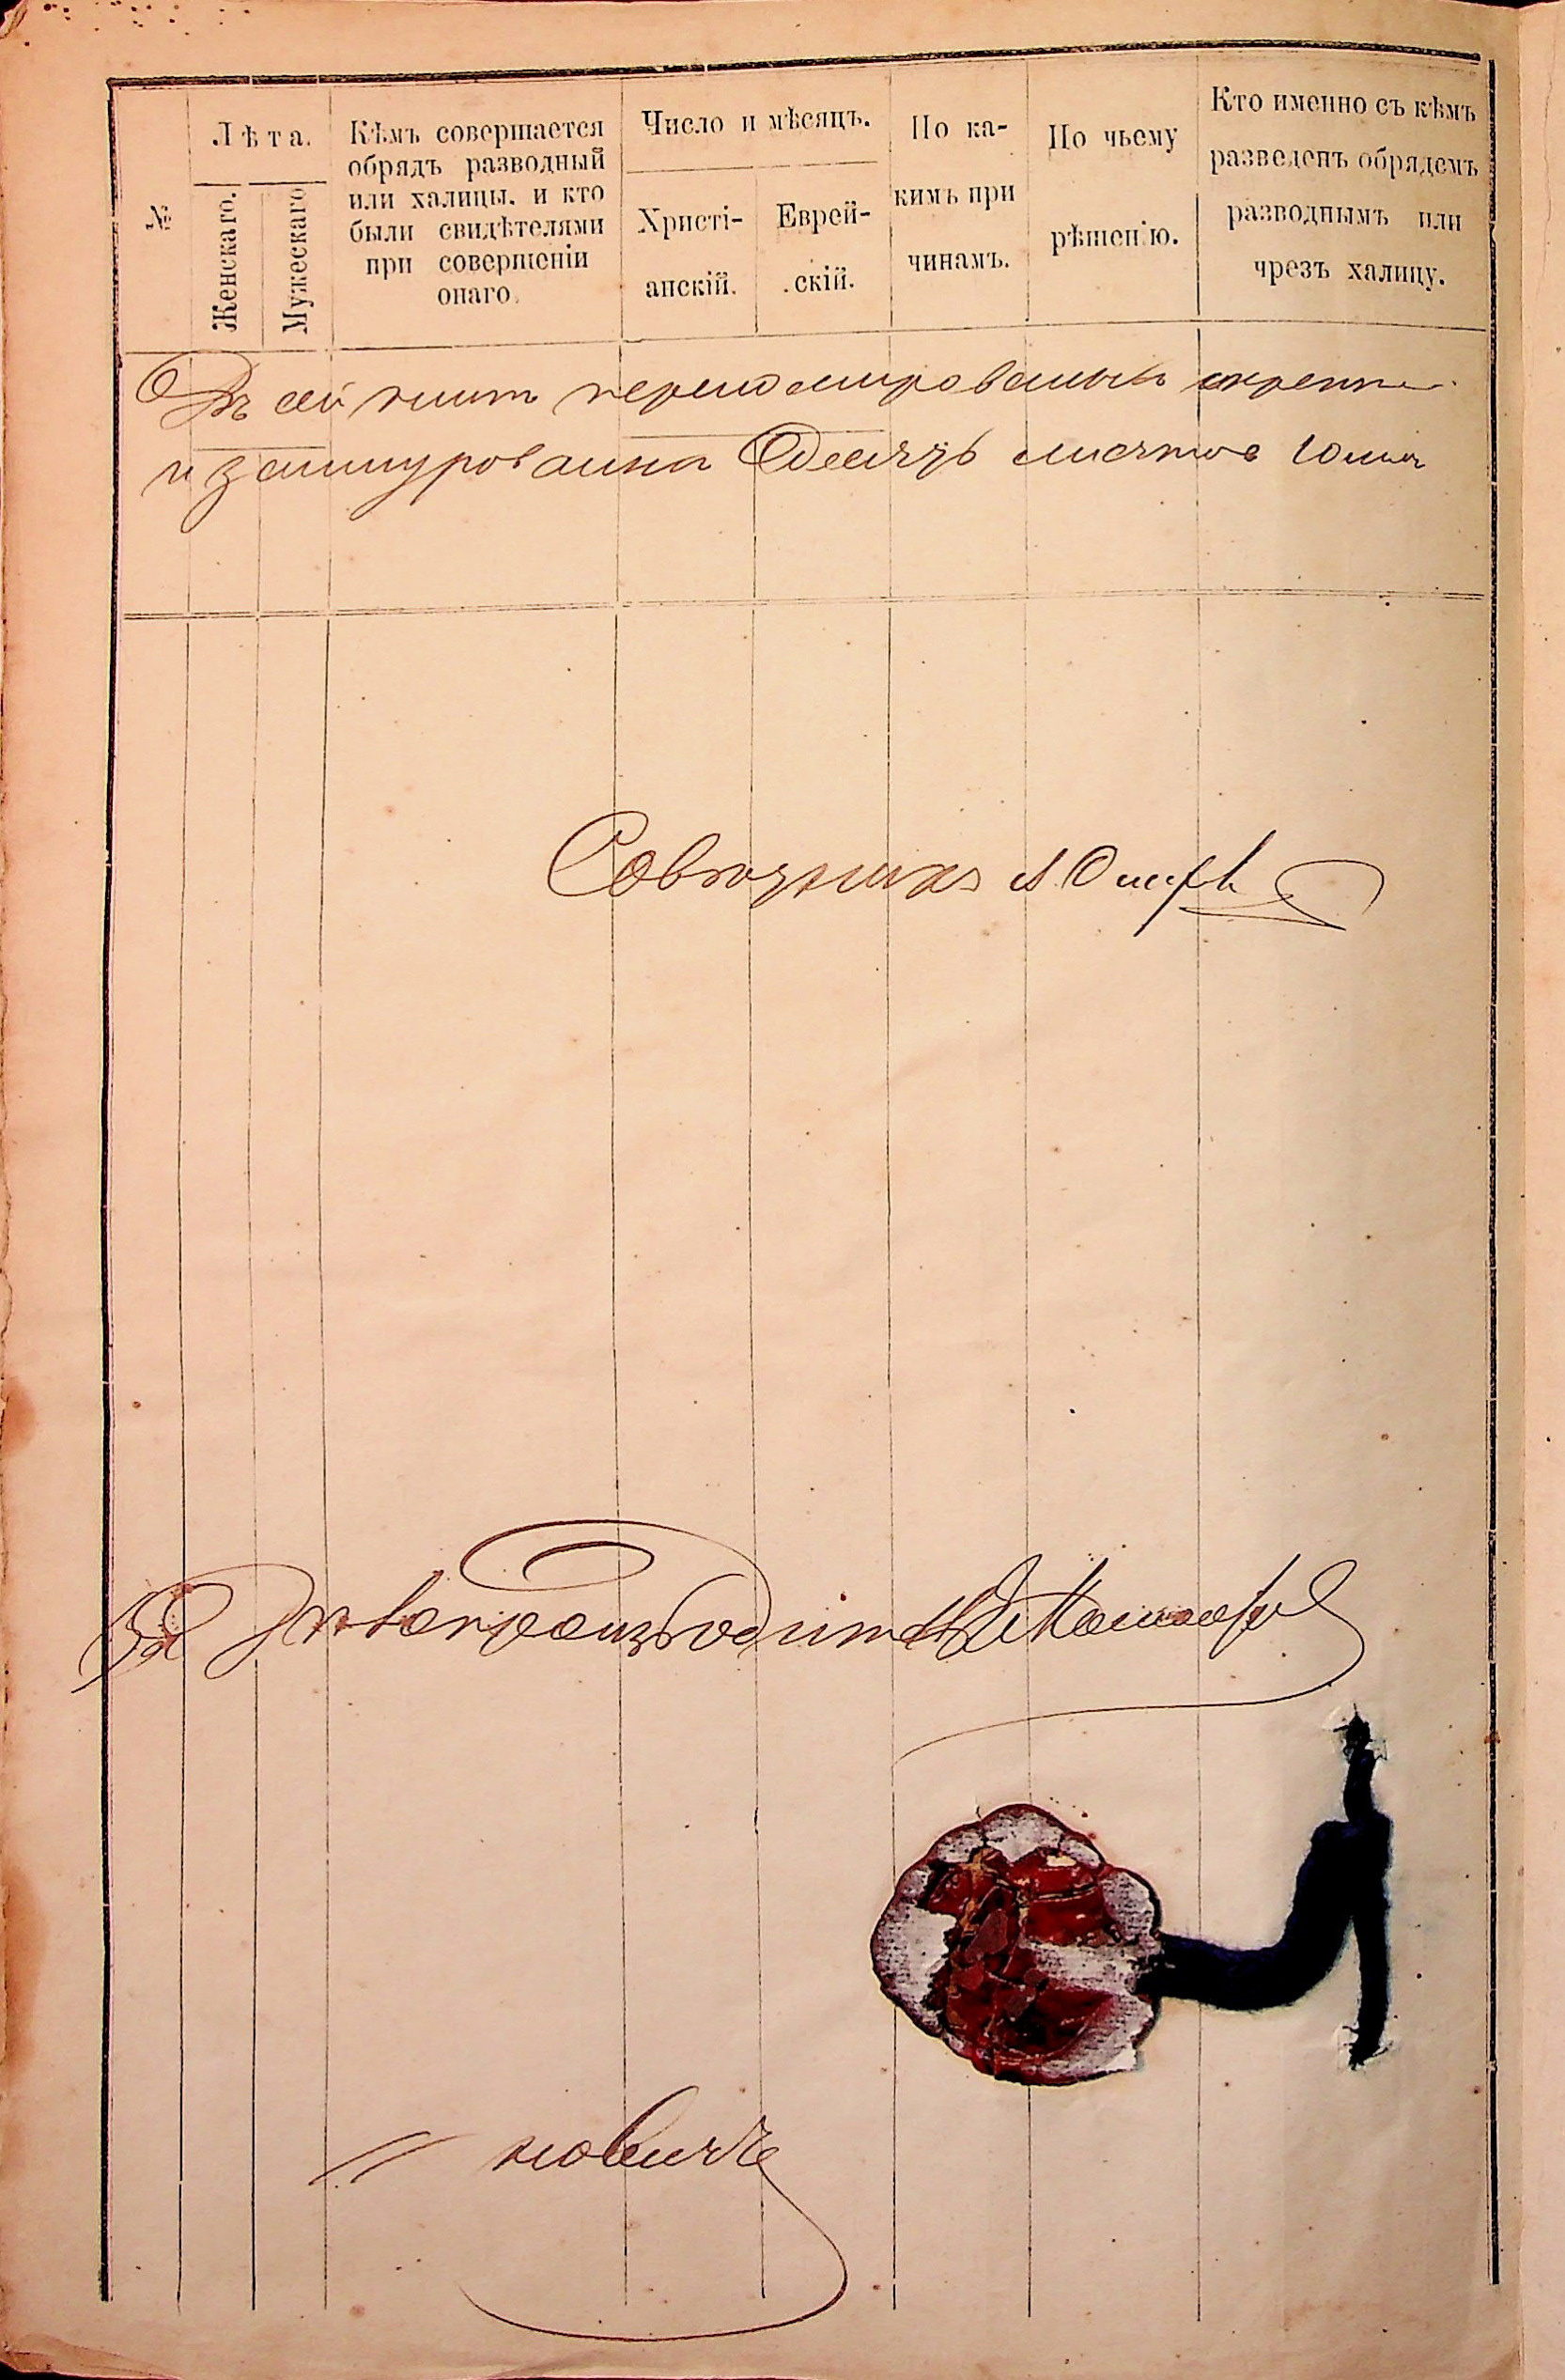 №
Лѣта.
Женскаго.
Мужескаго
Кѣмъ совершается
обрядъ разводный
или халицы. и кто
были свидѣтелями
при совершеніи
онаго.
Число и мѣсяцъ.
Христі-
анскій.
Еврей-
скій.
По ка-
кимъ при
чинамъ.
По чьему
рѣшенію.
Кто именно съ кѣмъ
разведенъ обрядомъ
разводнымъ или
чрезъ халицу.
Въ сей книгѣ перенумерованныхъ скрепл
и зашнурованных десять листов
Совѣтникъ
За Дѣлопроизводителя